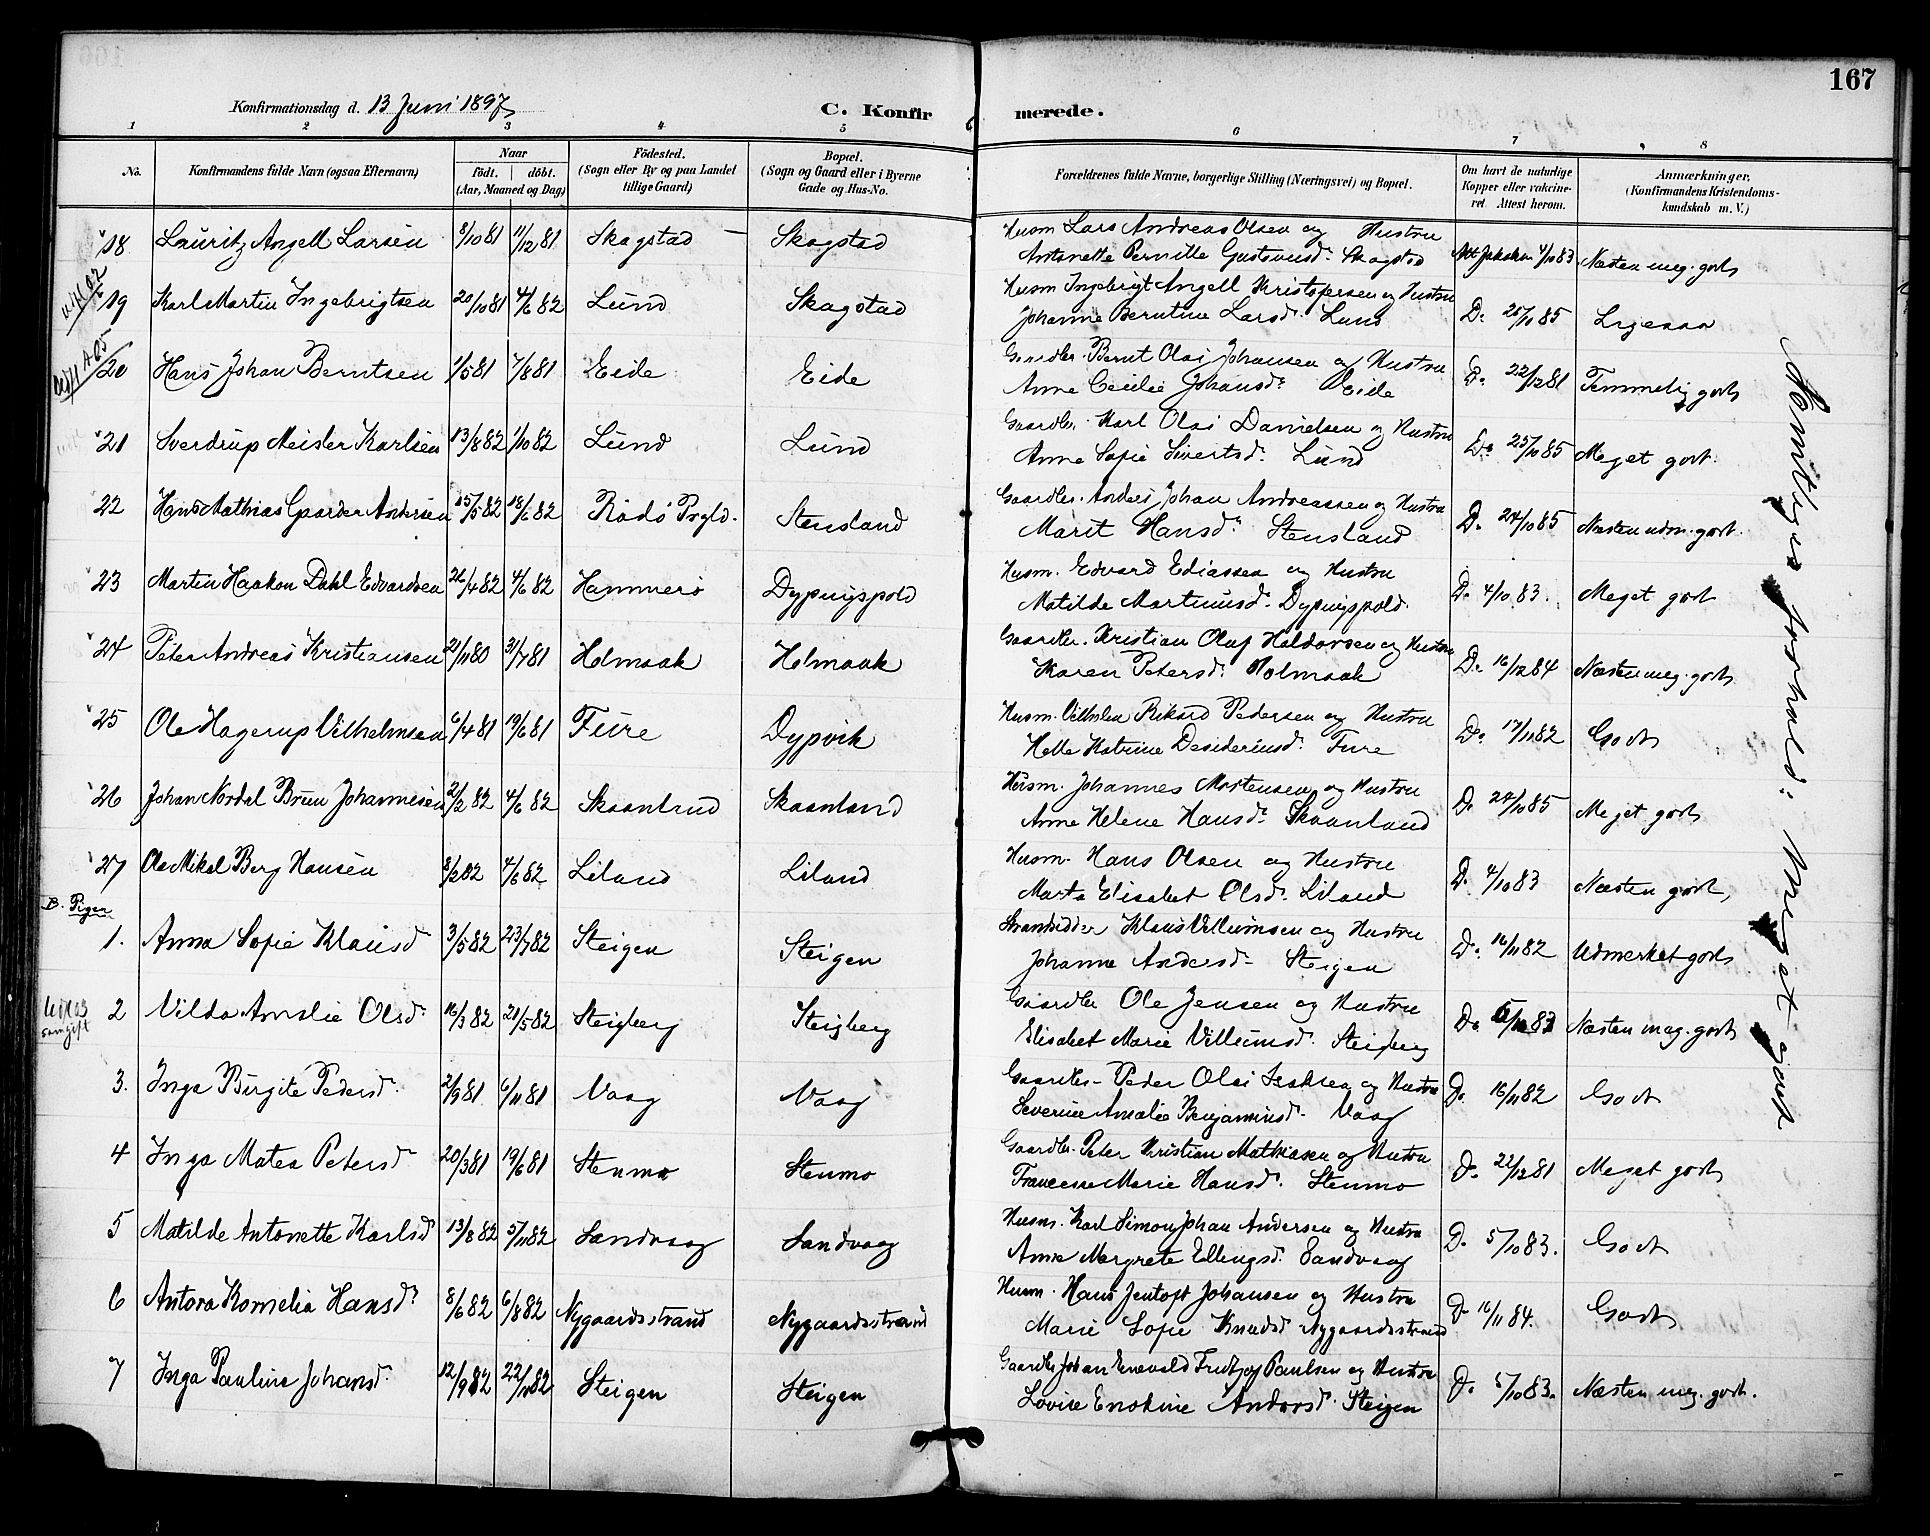 167
Konfirmationsdag d. 13 Juni 1897
C. Konfirmerede.
1 2 3 4 5 6 7 8
No.
Konfirmandens fulde Navn (ogsaa Efternavn)
Naar
födt. döbt.
(Aar, Maaned og Dag)
Födested.
(Sogn eller By og paa Landet tillige Gaard)
Bopæl.
(Sogn og Gaard eller i Byerne Gade og Hus-No.
Forældrenes fulde Navne, borgerlige Stilling (Næringsvei) og Bopæl.
Om havt de naturlige Kopper eller vakcineret. Attest herom.
Anmærkninger,
(Konfirmandens Kristendomskundskab m. V.)
18 Lauritz Angell Larsen 8/10 81 11/12 81 Skagstad Skagstad Husm Lars Andreas Olsen og Hustru 4/10 83
Antonette Pernille Gustavusd. Skagstad Næsten meg. godt
19 Karl Martin Ingebrigtsen 20/10 81 4/6 82 Lund Skagstad Husm Ingebrigt Angell Kristofersen og Hustru
Johanne Berntine Larsd. Lund Do 25/10 85 Ligesaa
20 Hans Johan Berntsen 1/5 81 7/8 81 Eide Eide Gaardbr. Bernt Olai Johansen og Hustru
Anne Cecilie Johansd. Eide Do 22/12 81 Temmelig godt
21 Sverdrup Meisler Karlsen 13/8 82 1/10 82 Lund Lund Gaardbr. Karl Olai Danielsen og Hustru
Anne Sofie Sivertsd. Lund Do 25/10 85 Meget godt.
22 Hans Mathias Gaarder Andersen 15/5 82 18/6 82 Rödö Prgld. Stensland Gaardbr. Anders Johan Andreassen og Hustru
Marit Hansd. Stensland Do 24/10 85 Næsten udm. godt.
23 Martin Haakon Dahl Edvardsen 26/4 82 4/6 82 Hammerö Dypingspold Husm. Edvard Ediassen og Hustru
Matilde Martinusd. Dypingspold. Do 4/10 83. Meget godt
24 Peter Andreas Kristiansen 21/11 80 31/7 81 Holmaak Holmaak Gaardbr. Kristian Oluf Haldorsen og Hustru
Karen Petersd. Holmaak Do 16/12 84 Næsten meg. godt
25 Ole Hagerup Vilhelmsen 6/4 81 19/6 81 Fure Dypvik Husm. Vilhelm Rikard Pedersen og Hustru
Helle Katrine Desideriusd. Fure Do 17/11 82 Godt
26 Johan Nordal Bruun Johannesen 2/2 82 4/6 82 Skaanland Skaanland Husm. Johannes Mortensen og Hustru
Anne Helene Hansd. Skaanland Do 24/10 85 Meget godt
27 Ole Mikal Berg Hansen 8/2 82 4/6 82 Liland Liland Husm. Hans Olsen og Hustru
Marta Elisabet Olsd. Liland Do 4/10 83 Næsten godt
B. Piger
1. Anna Sofie Klausd 3/5 82 23/7 82 Steigen Steigen Strandsidder Klaus Villumsen og Hustru
Johanne Andersd. Steigen Do 16/11 82 Udmerket godt
samgift
2 Vilda Amalie Olsd. 16/3 82 21/5 82 Steigberg Steigberg Gaardbr Ole Jensen og Hustru
Elisabet Marie Villumsd. Steigberg Do Næsten meg. godt
3. Inga Birgite Pedersd. 2/9 81 6/11 81 Vaag Vaag Gaardbr. Peder Olai Isaksen og Hustru
Severine Amalie Benjaminsd. Vaag Do 16/11 82 Godt
4 Inga Matea Petersd 20/3 81 19/6 81 Stenmo Stenmo Gaardbr. Peter Kristian Mathiasen og Hustru
Marie Hansd. Stenmo Do 22/12 81 Meget godt
5 Matilde Antonette Karlsd 13/8 82 5/11 82 Sandvaag Sandvaag Husm. Karl Simon Johan Andersen og Hustru
Anne Margrete Ellingsd. Sandvaag Do 5/10 83. Godt
6 Antora Kornelia Hansd. 8/6 82 6/8 82 Nygaardsstrand Nygaardsstrand Husm. Hans Jentoft Johansen og Hustru
Marie Sofie Knudsd Nygaardsstrand Do 16/11 84. Godt
7 Inga Pauline Johansd. 12/9 82 22/11 82 Steigen Steigen Gaardbr Johan Enevald Fridtjof Paulsen og Hustru
Lovise Enokine Andorsd. Steigen Do 5/10 83. Næsten meg. godt.
Samtliges forhold: Meget godt